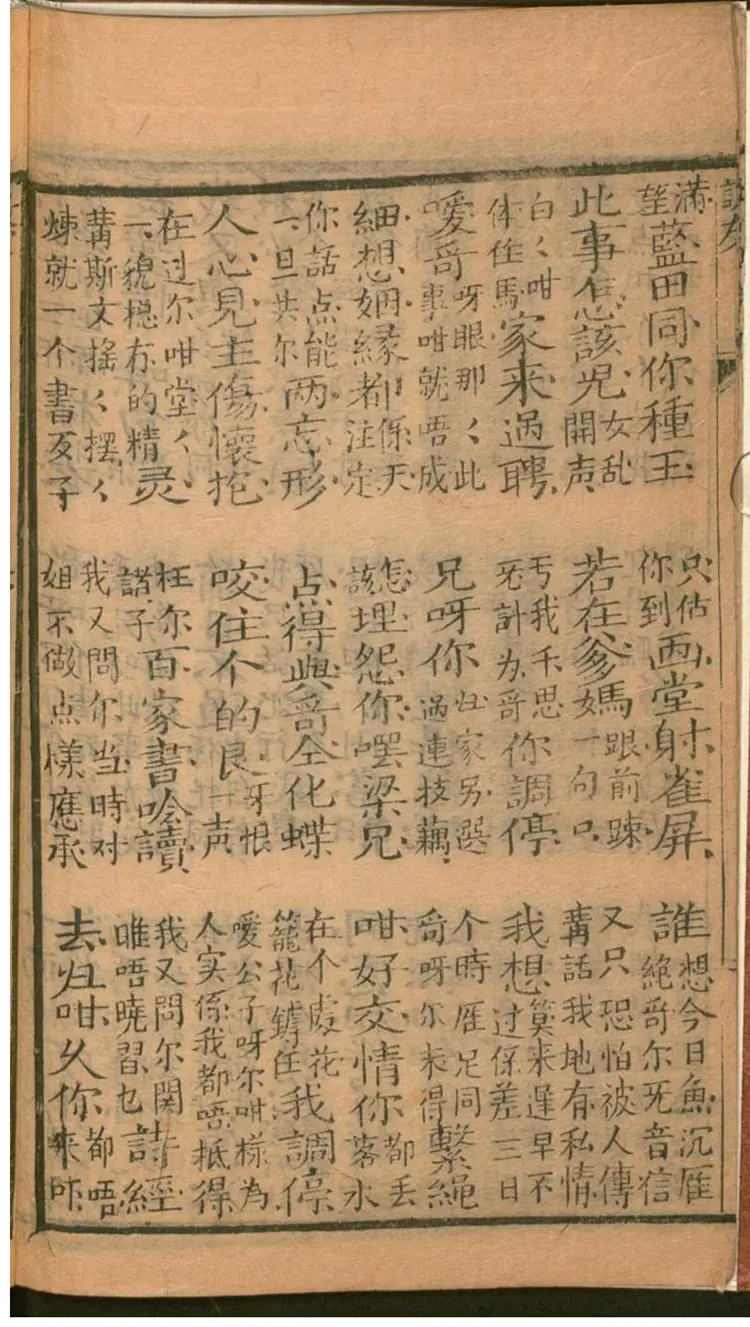 滿望藍田同你種玉
只估你到画堂射雀屏
誰想今日魚沉雁絕哥尔死音信
此事怎該児女乱開声
若在爹媽跟前諫一句口
又只恐怕被人傳講話我地有私情
白〻咁体住馬家来過聘
亏我千思死計为哥你調停
我想莫来遲早不过係差三日
噯哥呀眼那〻此事咁就唔成
兄呀你归家另選過連技藕
个時雁足同哥呀尔未得繫繩
細想姻縁都係天注定
怎該埋怨你梁兄
咁好交情你都丢落水
你話点能一旦共尔两忘形
点得與哥仝化蝶
在个處花籠花罇任我調停
人心見主傷懷抱
咬住个的良牙恨一声
噯公子呀尔咁樣为人实係我都唔抵得
在过尔咁堂〻一貌穏冇的精灵
枉尔諸子百家書唫讀
我又問尔関雎唔曉習乜詩經
講斯文搖〻擺〻煉就一个書歹子
我又問尔当時对姐不做点樣應承
去归咁久你都唔来咋